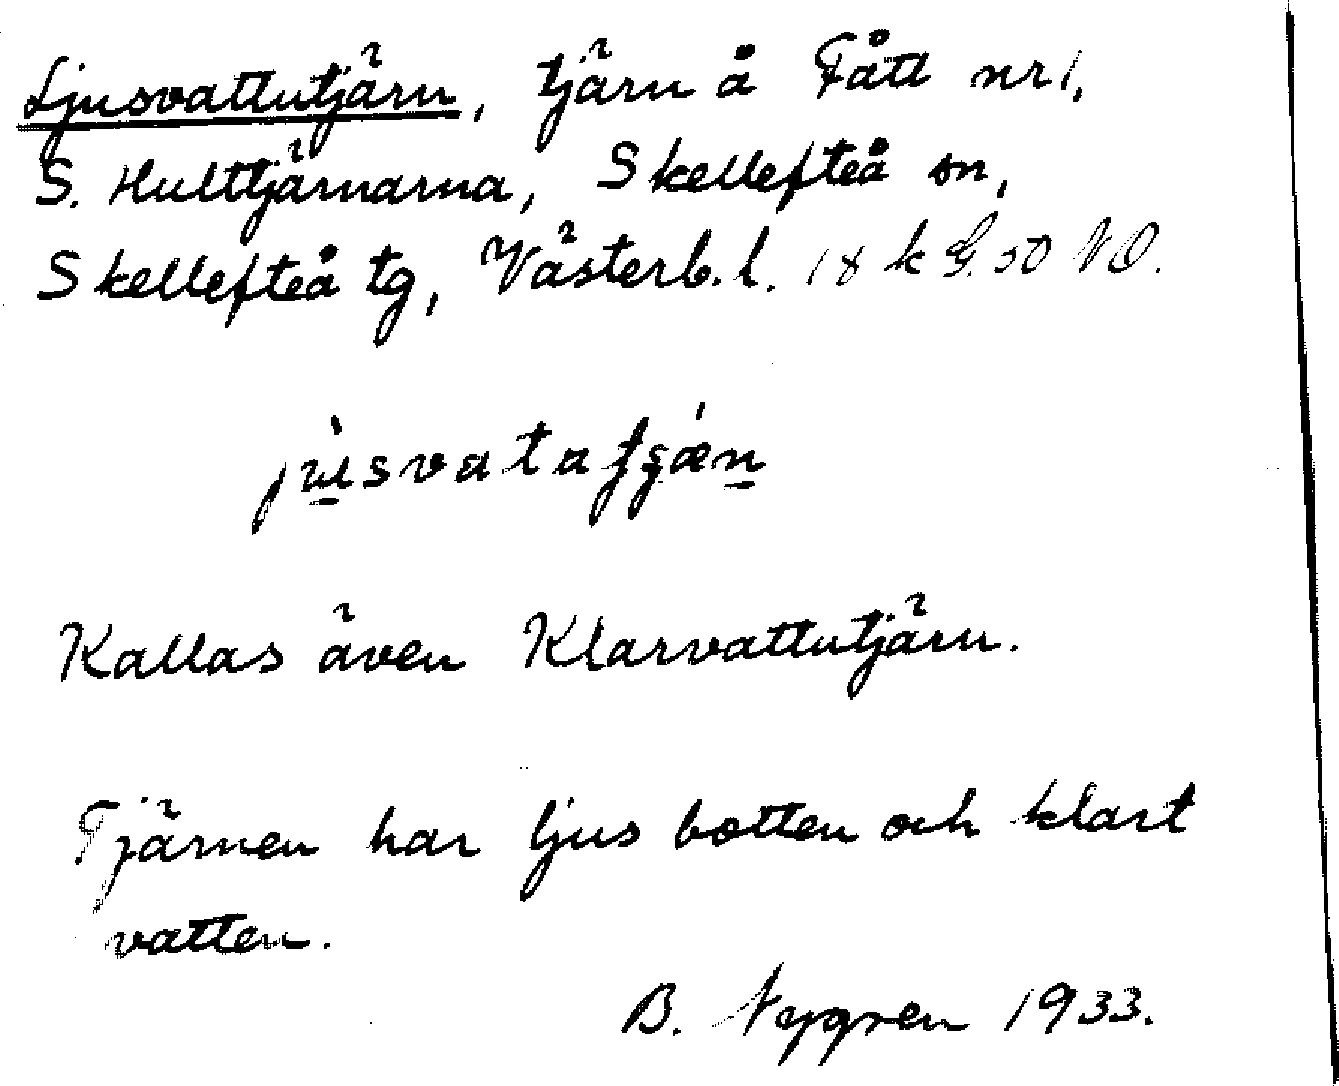 Ljusvattutjärn, tjärn å Fått nr 1,
S. Hulttjärnarna, Skellefteå sn,
Skellefteå tg, Västerb. l. 18 k G. 50 NO.
Kallas även Klarvattutjärn.
Tjärnen har ljus botten och klart
vatten.
B. Nygren 1933.